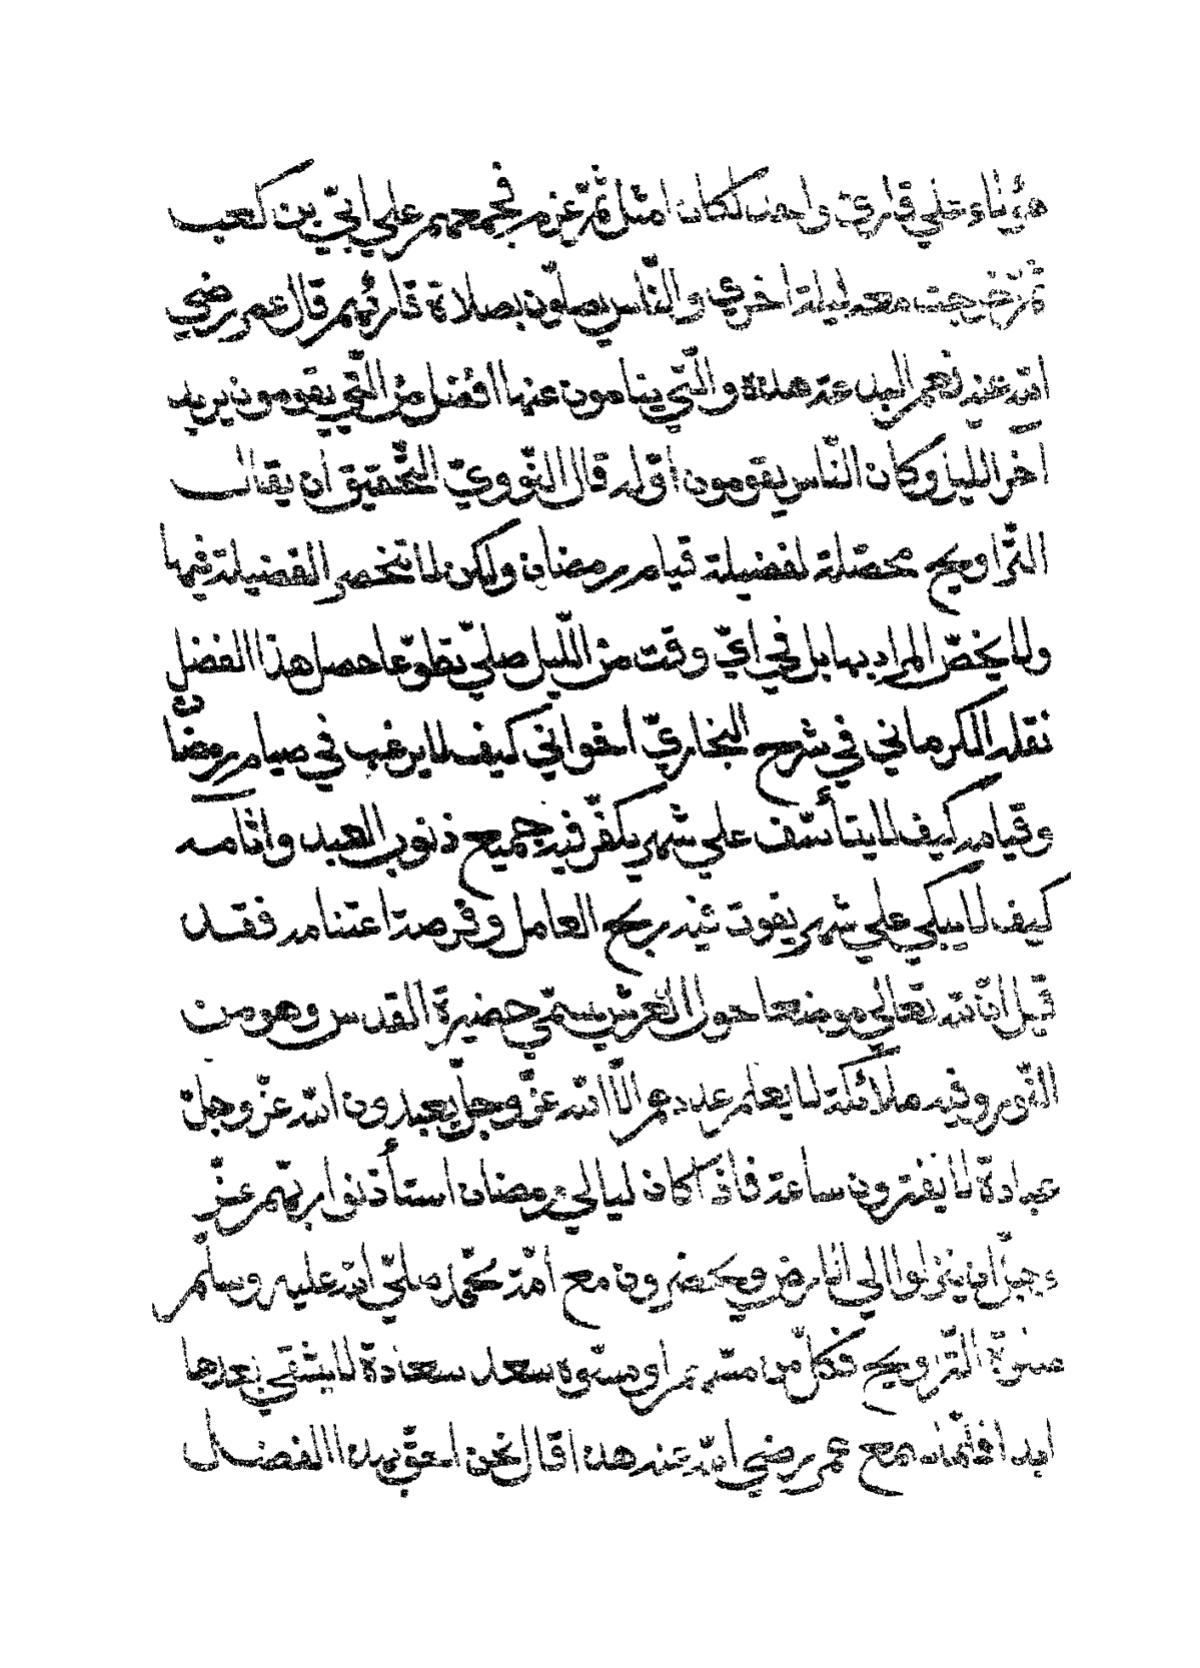 هؤلاء علي قارئ واحد لكان امثل ثمّ عزم فجمعهم علي ابيّ بن كعب
ثمّ خرجت معه ليلة اخري والنّاس يصلّون بصلاة قارئهم قال عمر رضي
الله عنه نعم البدعة هذه والّتي ينامون عنها افضل من الّتي يقومون يريد
اخر الليل وكان النّاس يقومون اوّله قال النّوويّ التّحقيق ان يقال
التّراويح محصّلة لفضيلة قيام رمضان ولكن لا تنحصر الفضيلة فيها
ولا يخصّ المراد بها بل في ايّ وقت من اللّيل صلّي تطوّعا حصل هذا الفضل
نقله الكرماني في شرح البخاريّ اخواني كيف لا يرغب في صيام رمضان
وقيامه كيف لا يتأسّف علي شهر يكفّر فيه جميع ذنوب العبد واثامه
كيف لا يبكي علي شهر يفوت فيه ربح العامل وفرصة اغتنامه فقد
قيل انّ لله تعالي موضعا حول العرش يسمّي حضيرة القدس وهو من
النّور وفيه ملائكة لا يعلم عددهم الّا الله عزّ وجلّ يعبدون الله عزّ وجلّ
عبادة لا يفترون ساعة فاذا كان ليالي رمضان استأذنوا ربّهم عزّ
وجلّ ان ينزلوا الي الارض ويحضرون مع امّة محمّد صلّي الله عليه وسلّم
صلوة التّراويح فكلّ من مسّهم او مسّوه سعد سعادة لا يشقي بعدها
ابدا فلمّا سمع عمر رضي الله عنه هذا قال نحن احقّ بهذا الفضل